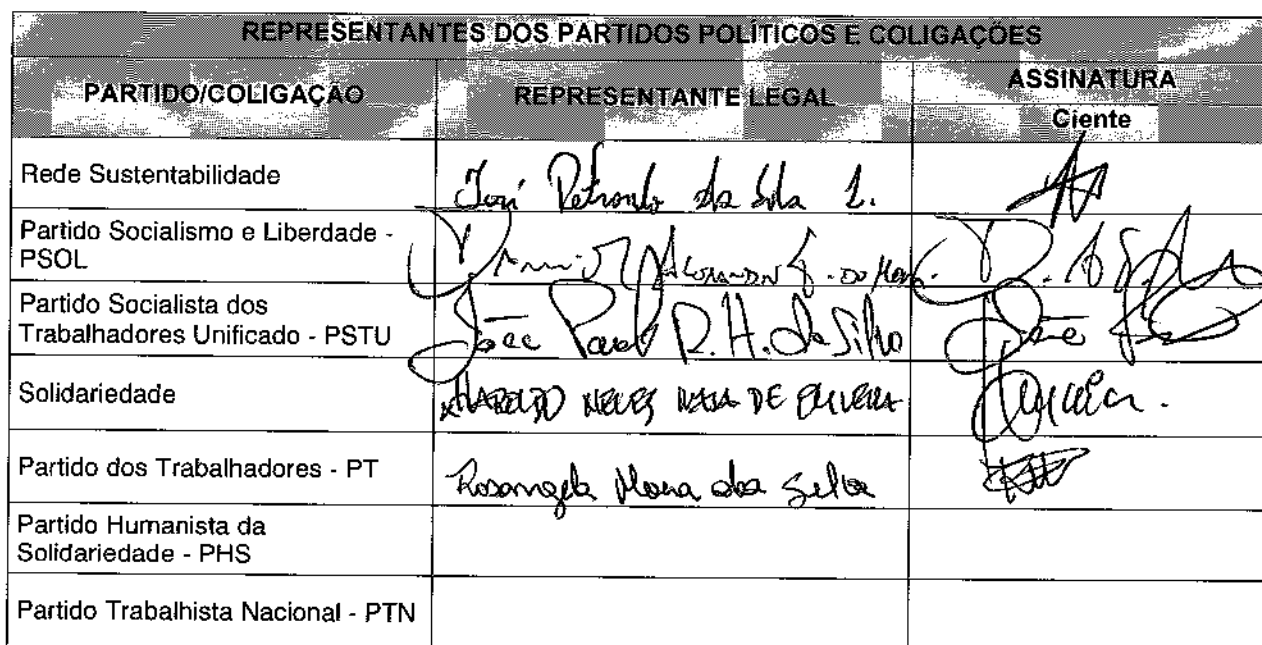 REPRESENTANTES DOS PARTIDOS POLÍTICOS E COLIGAÇÕES
PARTIDO/COLIGAÇÃO REPRESENTANTE LEGAL ASSINATURA
Ciente
Rede Sustentabilidade
José Petronilo da Silva L.
Partido Socialismo e Liberdade -
PSOL
Partido Socialista dos
Trabalhadores Unificado - PSTU
João Paulo R. H. da Silva
Solidariedade
HAROLDO NEVES DE OLIVEIRA
Partido dos Trabalhadores - PT
Rosangela Maria da Silva
Partido Humanista da
Solidariedade - PHS
Partido Trabalhista Nacional - PTN